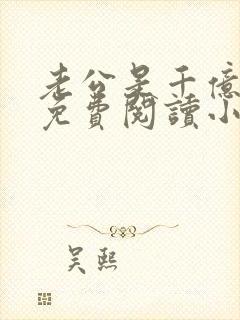 老公是千億
免費閱讀小
吴熙